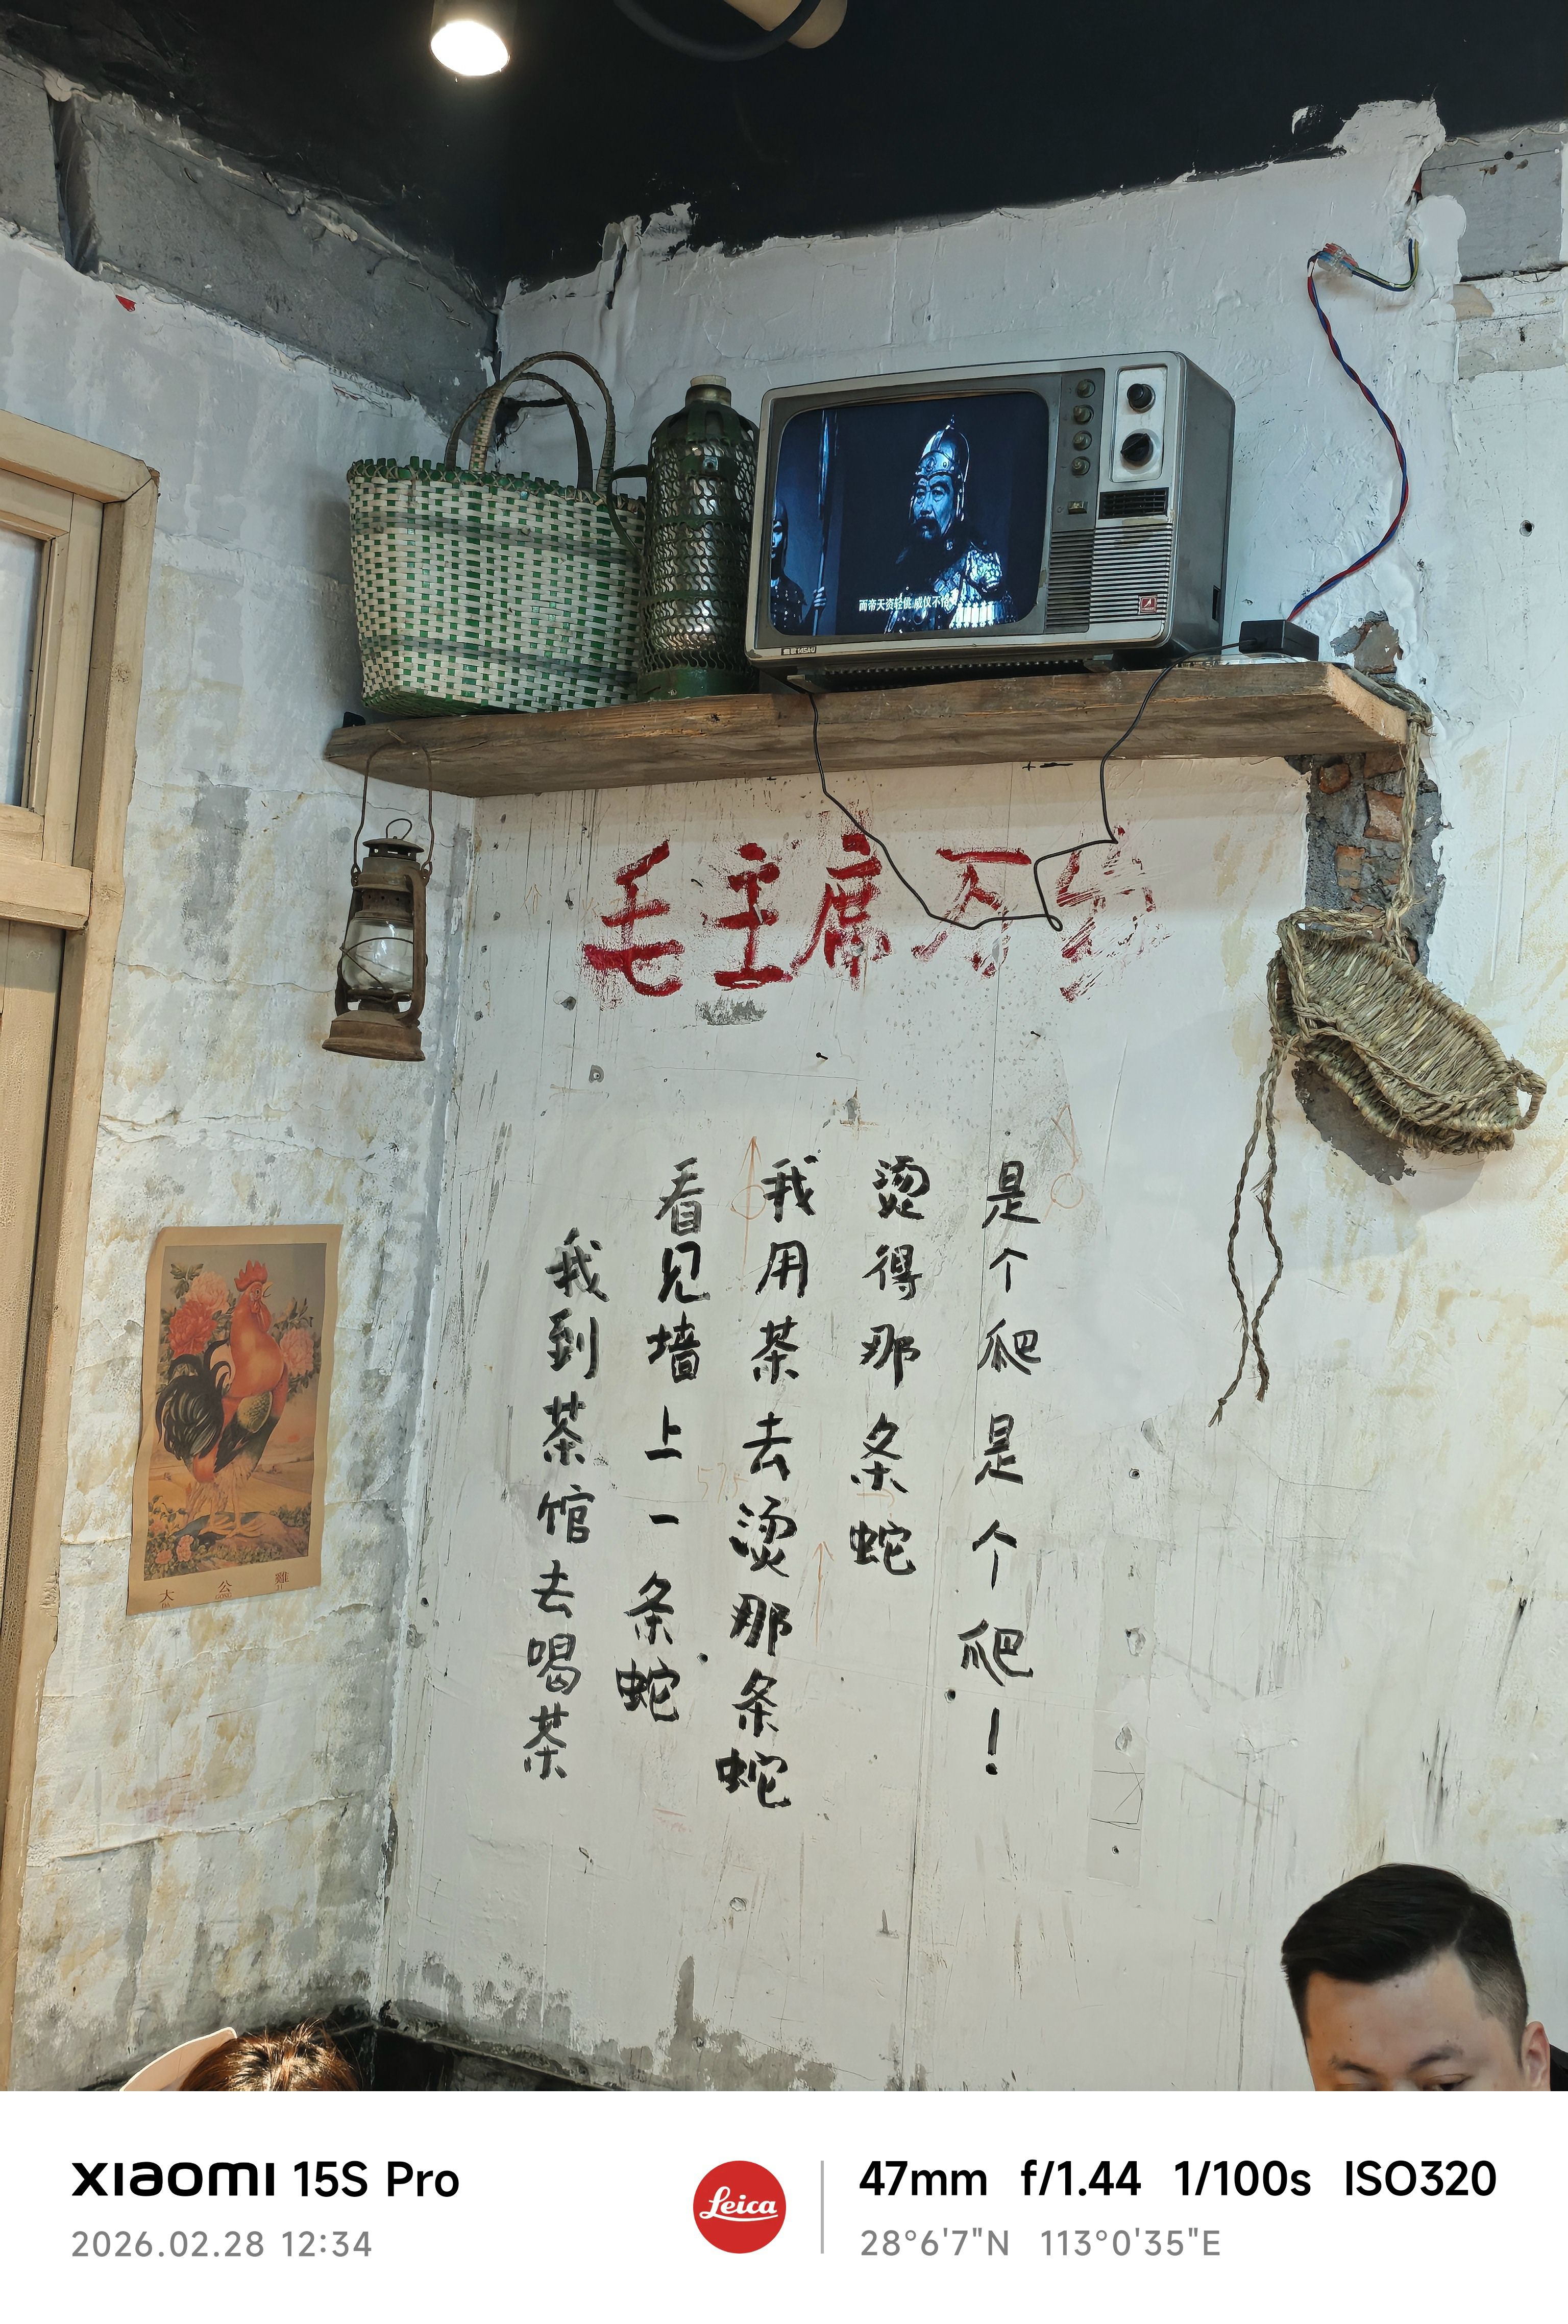 而帝天资轻佻 威仪不恪
毛主席万岁
我到茶馆去喝茶
看见墙上一条蛇
我用茶去烫那条蛇
烫得那条蛇
是个爬是个爬！
大公雞
XIAOMI 15S Pro
2026.02.28 12:34
Leica
47mm f/1.44 1/100s ISO320
28°6'7"N 113°0'35"E